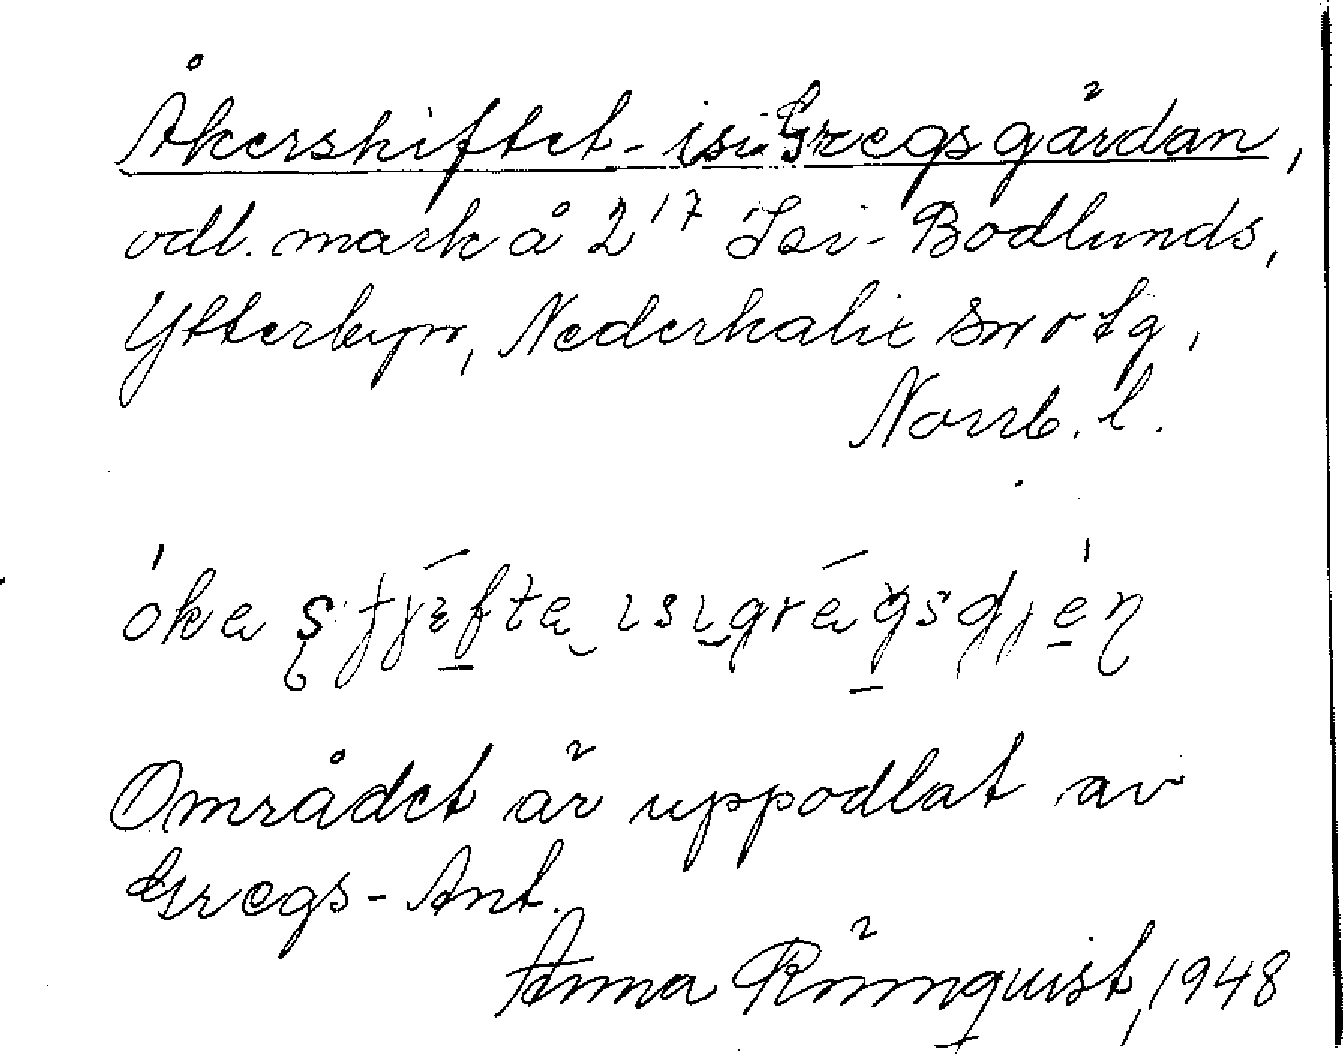 Åkerskiftet-isi-Gregsgårdan,
odl. mark å 2¹⁷ Isi-Bodlunds,
Ytterbyn, Nederkalix sn o tg,
Norrb. l.
Området är uppodlat av
Gregs-Ant.
Anna Rönnquist, 1948